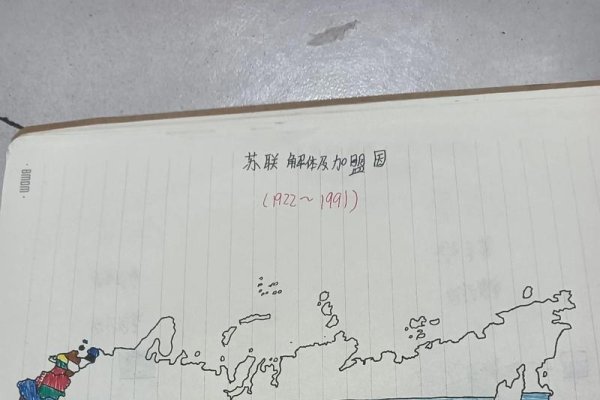 苏联解体及加盟国
(1922~1991)